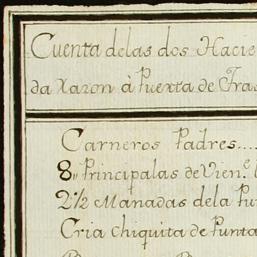 Cuenta delas dos Hacie
da Xaron à Puerta de Tra
Carneros Padres....
8„ Principalas de Vien.ᵉ
2½ Manadas dela Pu
Cria chiquita de Punta